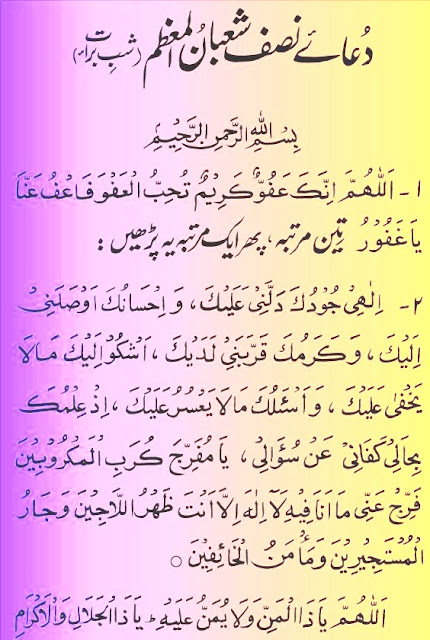 دُعائے نصف شعبانُ المعظم (شبِ برات)
بِسْمِ اللّٰهِ الرَّحْمٰنِ الرَّحِيْمِ
۱ - اَللّٰهُمَّ اِنَّكَ عَفُوٌّ كَرِيْمٌ تُحِبُّ الْعَفْوَ فَاعْفُ عَنَّا
يَا غَفُوْرُ تین مرتبہ، پھر ایک مرتبہ یہ پڑھیں:
۲ - اِلٰهِيْ جُوْدُكَ دَلَّنِيْ عَلَيْكَ، وَاِحْسَانُكَ اَوْصَلَنِيْ
اِلَيْكَ، وَكَرَمُكَ قَرَّبَنِيْ لَدَيْكَ، اَشْكُوْ اِلَيْكَ مَالَا
يَخْفٰى عَلَيْكَ، وَاَسْئَلُكَ مَالَا يَعْسُرُ عَلَيْكَ، اِذْ عِلْمُكَ
بِحَالِيْ كَفَانِيْ عَنْ سُؤَالِيْ، يَا مُفَرِّجَ كُرَبِ الْمَكْرُوْبِيْنَ
فَرِّجْ عَنِّيْ مَا اَنَا فِيْهِ لَآ اِلٰهَ اِلَّا اَنْتَ ظَهْرُ اللَّاجِيْنَ وَجَارُ
الْمُسْتَجِيْرِيْنَ وَمَأْمَنُ الْخَائِفِيْنَ ○
اَللّٰهُمَّ يَا ذَا الْمَنِّ وَلَا يُمَنُّ عَلَيْهِ ط يَا ذَا الْجَلَالِ وَالْاِكْرَامِ